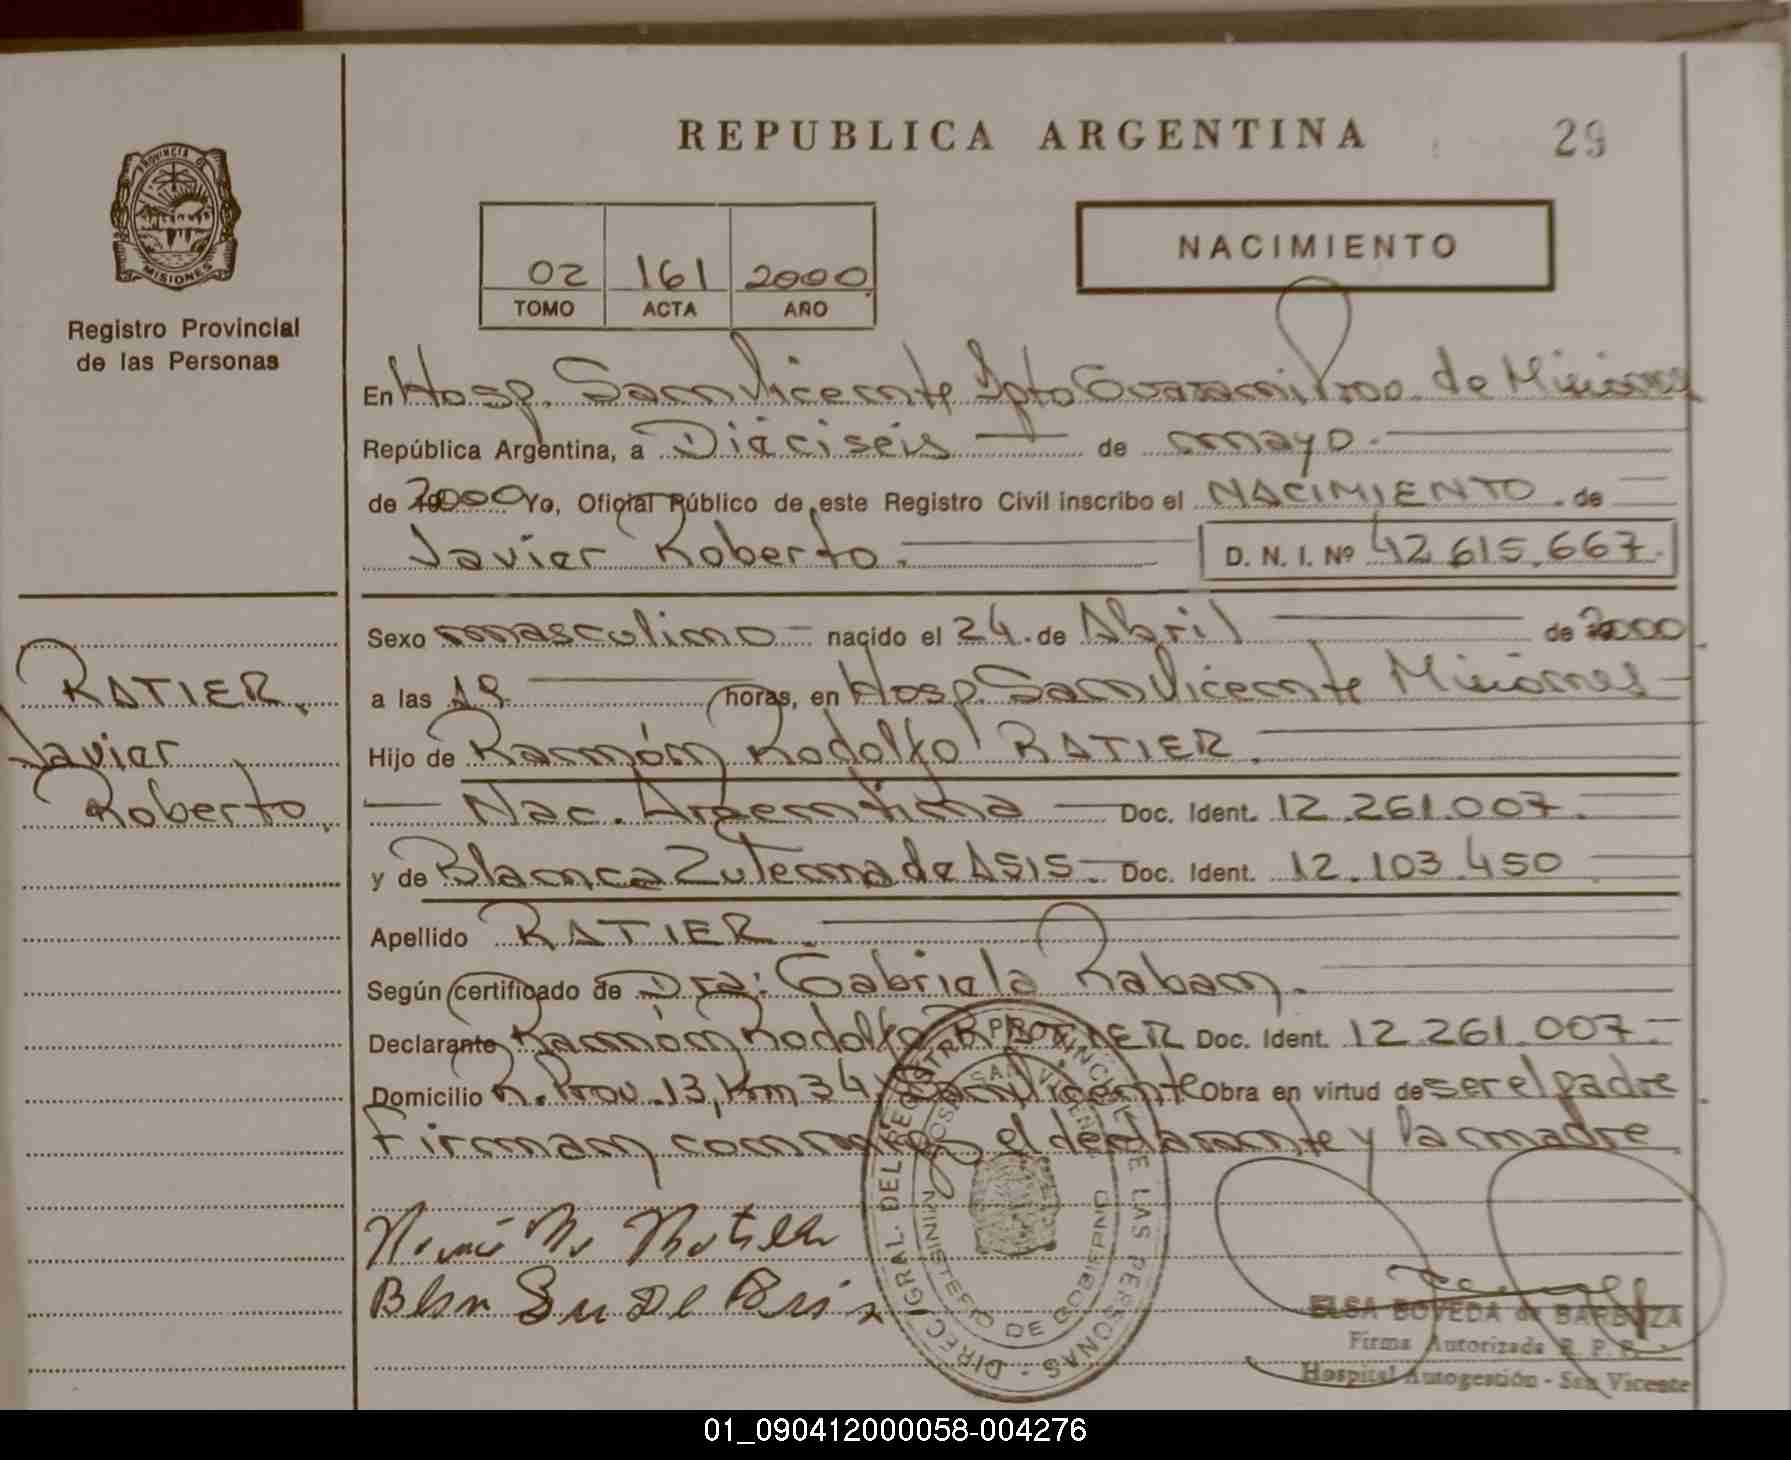 REPUBLICA ARGENTINA
29
PROVINCIA DE
MISIONES
Registro Provincial
de las Personas
02 161 2000
TOMO ACTA AÑO
NACIMIENTO
En Hosp. San Vicente Dpto Guarani Prov. de Misiones
República Argentina, a Diéciséis de mayo.
de 2000 Yo, Oficial Público de este Registro Civil inscribo el NACIMIENTO de
Javier Roberto. D. N. I. Nº 42.615.667.
Sexo masculino nacido el 24 de Abril de 2000
a las horas, en Hosp. San Vicente Misiones
Hijo de Ramón Rodolfo RATIER.
Nac. Argentina Doc. Ident. 12.261.007.
y de Blanca Zulema de ASIS Doc. Ident. 12.103.450
Apellido RATIER.
Según certificado de Dra: Gabriela Raban.
Declarante Ramón Rodolfo RATIER Doc. Ident. 12.261.007
Domicilio R. Prov. 13, Km 34, San Vicente Obra en virtud de ser el padre
Firman conmigo el declarante y la madre
RATIER,
Javier
Roberto,
DIREC. GRAL. DEL REGISTRO PROVINCIAL DE LAS PERSONAS
HOSP. SAN VICENTE
MINISTERIO DE GOBIERNO
ELSA BOVEDA de BARBOZA
Firma Autorizada R. P. P.
Hospital Autogestión - San Vicente
01_090412000058-004276